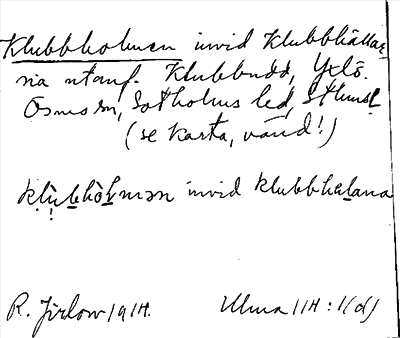 Klubbholmen invid Klubbhällar-
na utanf. Klubbudd, Yxlö.
Ösmo sn, Sotholms hd, Sthmsl.
(se karta, vänd!)
klùbhòlmən invid klubbhälana
R. Jirlow 1914. Ulma 114:1(d)